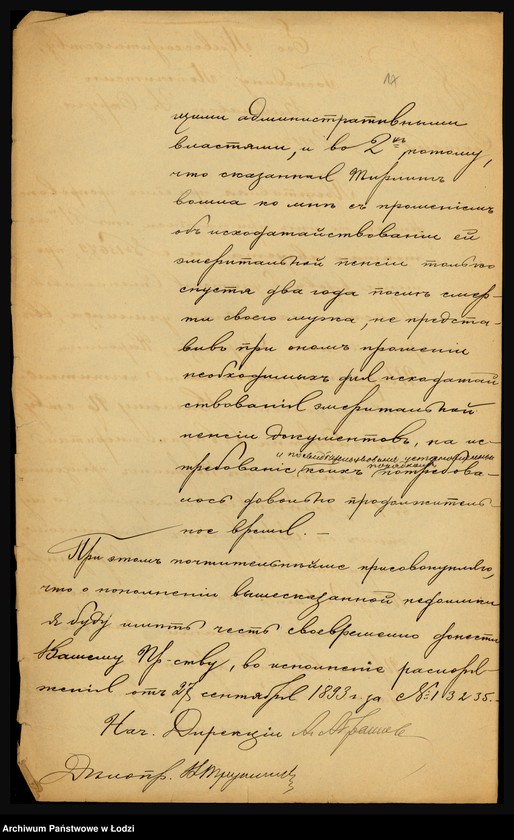 17
щими административными
властями, и во 2хъ, потому,
что сказанная
вошла ко мнѣ съ прошеніемъ
объ исходатайствованіи ей
эмеритальной пенсіи только
спустя два года послѣ смер-
ти своего мужа, не предста-
вивъ при ономъ прошеніи
необходимыхъ для исходатай
ствованія эмеритальной
пенсіи документовъ, на ис-
и установлены
порядкомъ
требованіе коихъ потребова-
лось довольно продолжитель-
ное время. —
При этомъ почтительнѣйше присовокупляю,
что о пополненіи вышесказанной недоимки
я буду имѣть честь своевременно донести
Вашему Пр-ству, во исполненіе распоря-
женія отъ 27 сентября 1893 г. за № 13235. -
Нач. Дирекціи
Дѣлопр.
Archiwum Państwowe w Łodzi